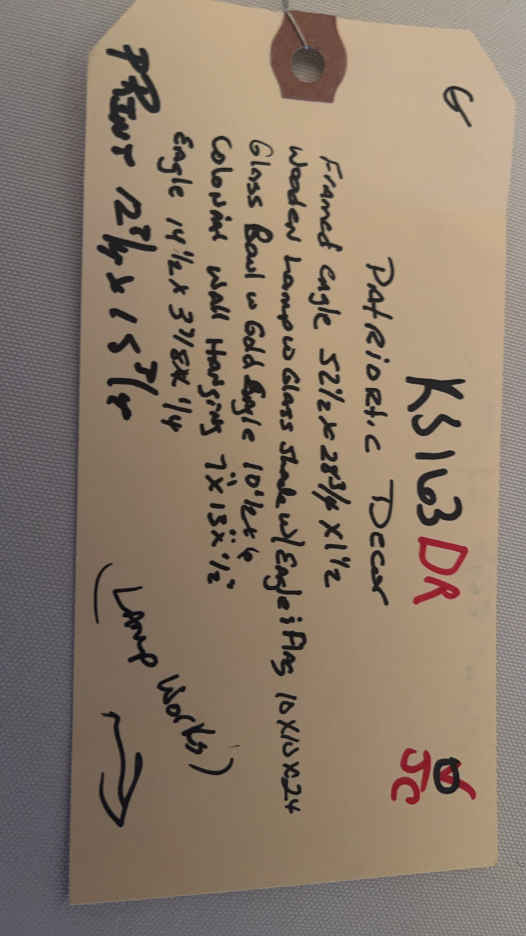 G
KS163 DR
JC
PATRIOTIC Decor
Framed eagle 52 1/2 x 28 3/4 x 1 1/2
Wooden Lamp w Glass Shade w/ Eagle & Flag 10 x 10 x 24
Glass Bowl w Gold Eagle 10 1/2 x 4
Colonial Wall Hanging 7" x 13 x 1/2"
Eagle 14 1/2 x 3 7/8 x 1/4
PRINT 12 3/4 x 15 3/4
(Lamp Works)